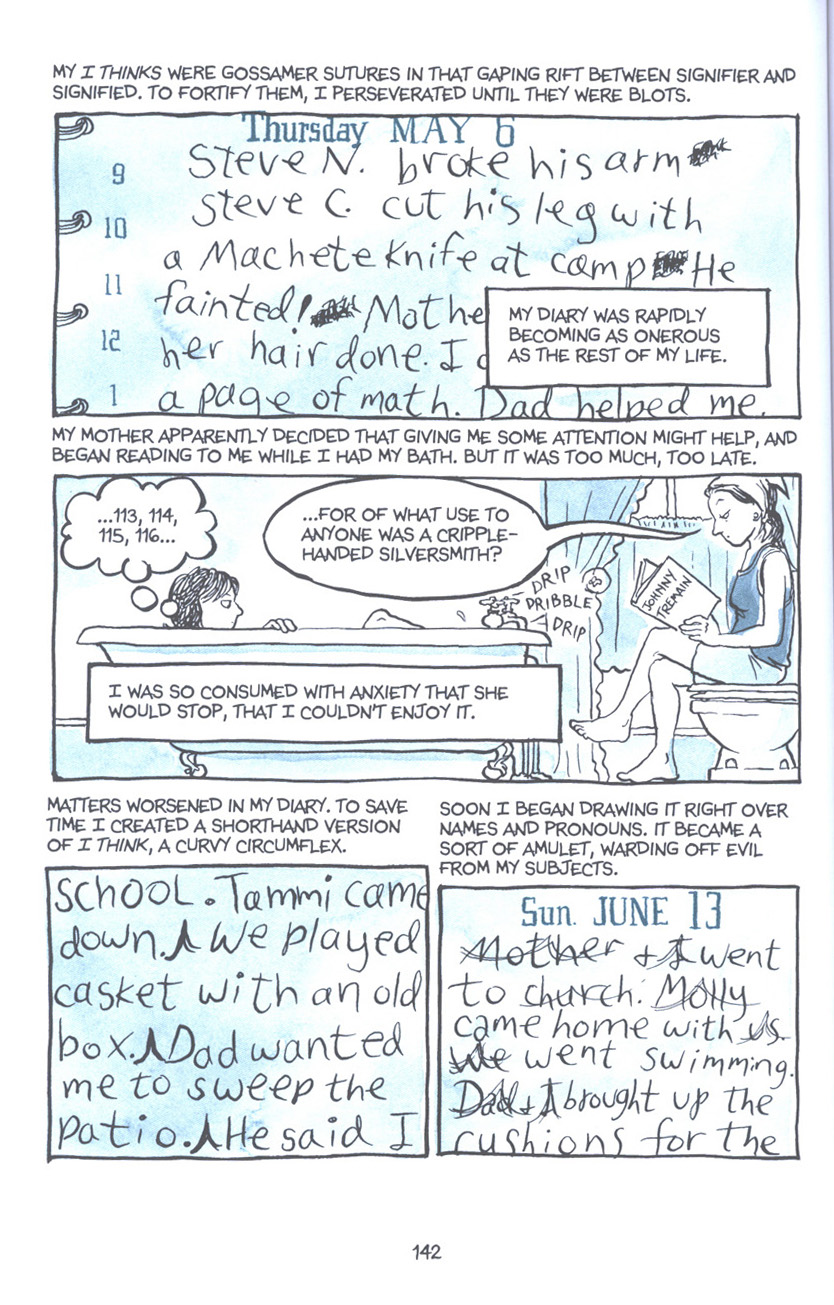 MY I THINKS WERE GOSSAMER SUTURES IN THAT GAPING RIFT BETWEEN SIGNIFIER AND
SIGNIFIED. TO FORTIFY THEM, I PERSEVERATED UNTIL THEY WERE BLOTS.
Thursday MAY 6
9 Steve N. broke his arm
Steve C. cut his leg with
10
a Machete Knife at camp He
11
fainted! Mothe
12
her hair done. I
1 a page of math. Dad helped me.
MY DIARY WAS RAPIDLY
BECOMING AS ONEROUS
AS THE REST OF MY LIFE.
MY MOTHER APPARENTLY DECIDED THAT GIVING ME SOME ATTENTION MIGHT HELP, AND
BEGAN READING TO ME WHILE I HAD MY BATH. BUT IT WAS TOO MUCH, TOO LATE.
...113, 114,
115, 116...
...FOR OF WHAT USE TO
ANYONE WAS A CRIPPLE-
HANDED SILVERSMITH?
DRIP
DRIBBLE
DRIP
JOHNNY
TREMAIN
I WAS SO CONSUMED WITH ANXIETY THAT SHE
WOULD STOP, THAT I COULDN'T ENJOY IT.
MATTERS WORSENED IN MY DIARY. TO SAVE
TIME I CREATED A SHORTHAND VERSION
OF I THINK, A CURVY CIRCUMFLEX.
SCHOOL. Tammi came
down. We played
casket with an old
box. Dad wanted
me to sweep the
patio. He said I
SOON I BEGAN DRAWING IT RIGHT OVER
NAMES AND PRONOUNS. IT BECAME A
SORT OF AMULET, WARDING OFF EVIL
FROM MY SUBJECTS.
Sun. JUNE 13
Mother + I went
to church. Molly
came home with us.
We went swimming.
Dad + I brought up the
cushions for the
142